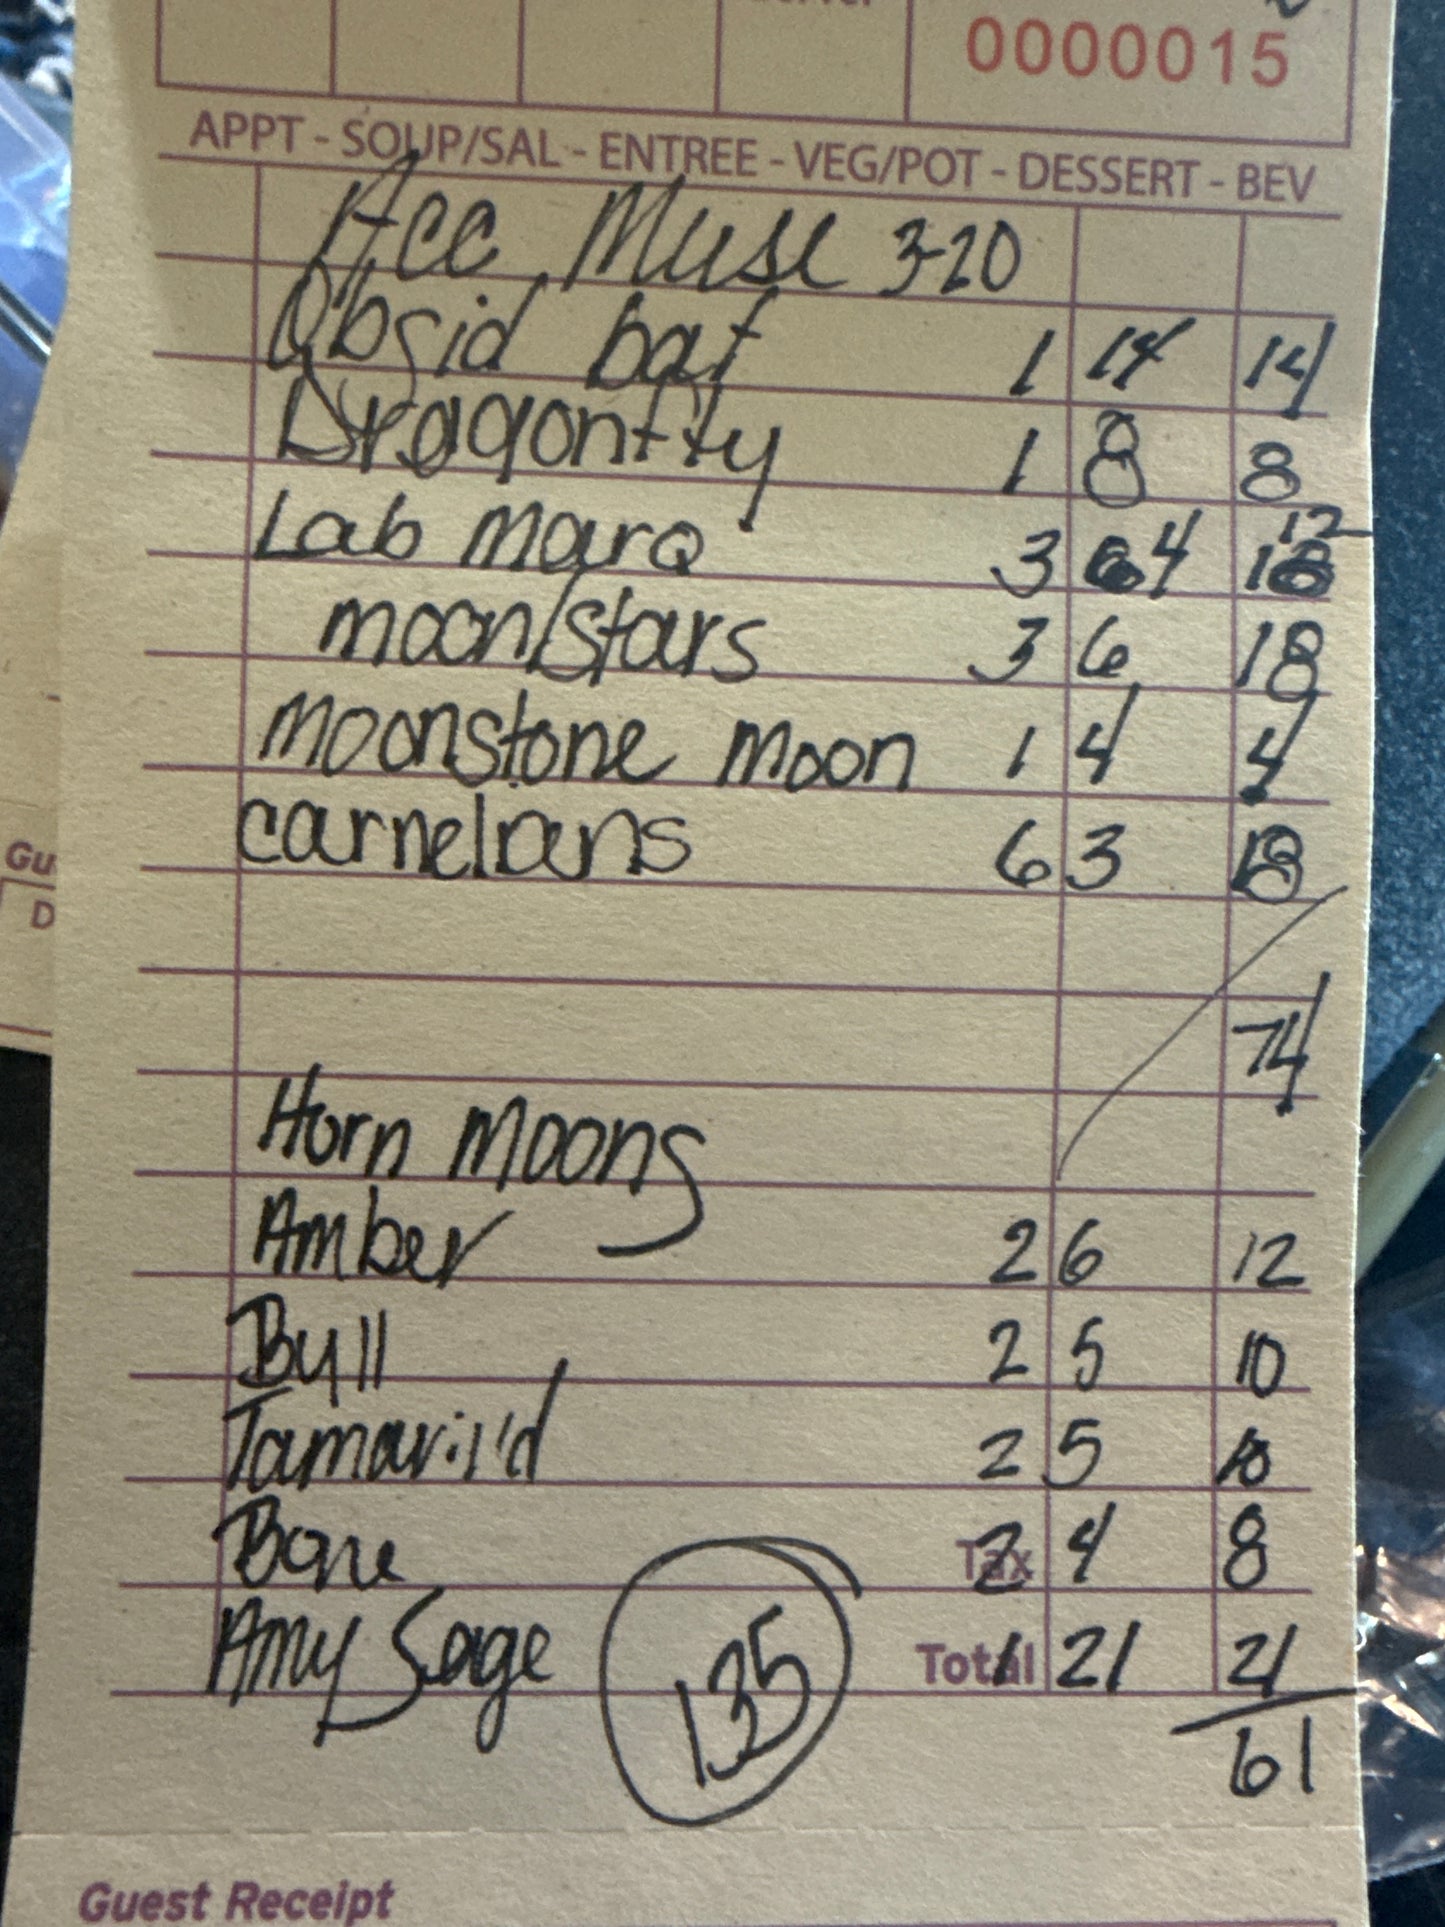 0000015
APPT - SOUP/SAL - ENTREE - VEG/POT - DESSERT - BEV
Acc. Muse 3-20
Obsid bat 1 14 14
Dragonfly 1 8 8
Lab Marq 3 4 12
moon/stars 3 6 18
Moonstone Moon 1 4 4
carnelians 6 3 18
74
Horn Moons
Amber 2 6 12
Bull 2 5 10
Tamarind 2 5 10
Bone Tax 2 4 8
Amy Sage Total 1 21 21
135
61
Guest Receipt